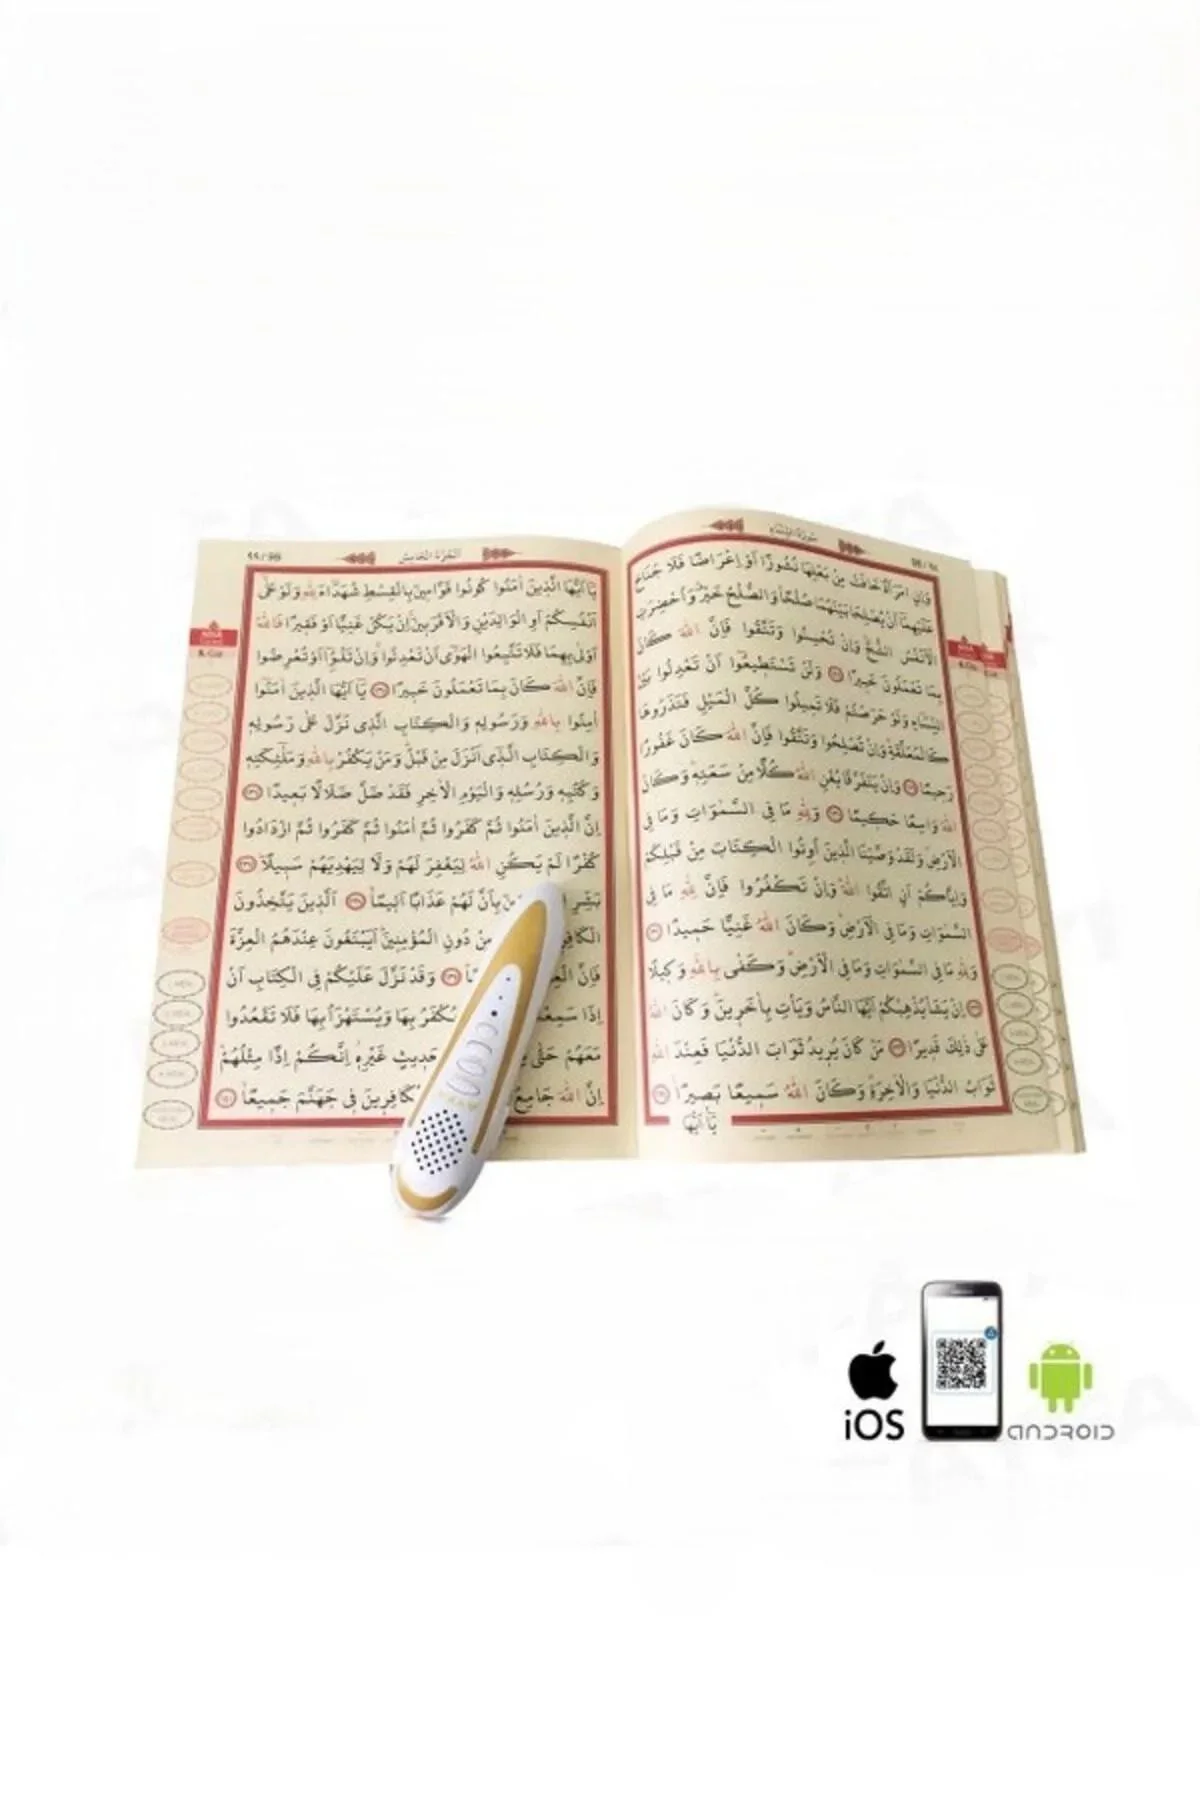 سُورَةُ النِّسَاءِ
وَاِنِ امْرَاَةٌ خَافَتْ مِنْ بَعْلِهَا نُشُوزًا اَوْ اِعْرَاضًا فَلَا جُنَاحَ
عَلَيْهِمَا اَنْ يُصْلِحَا بَيْنَهُمَا صُلْحًا وَالصُّلْحُ خَيْرٌ وَاُحْضِرَتِ
الْاَنْفُسُ الشُّحَّ وَاِنْ تُحْسِنُوا وَتَتَّقُوا فَاِنَّ اللّٰهَ كَانَ
بِمَا تَعْمَلُونَ خَبِيرًا ﴿١٢٨﴾ وَلَنْ تَسْتَطِيعُوا اَنْ تَعْدِلُوا بَيْنَ
النِّسَاءِ وَلَوْ حَرَصْتُمْ فَلَا تَمِيلُوا كُلَّ الْمَيْلِ فَتَذَرُوهَا
كَالْمُعَلَّقَةِ وَاِنْ تُصْلِحُوا وَتَتَّقُوا فَاِنَّ اللّٰهَ كَانَ غَفُورًا
رَحِيمًا ﴿١٢٩﴾ وَاِنْ يَتَفَرَّقَا يُغْنِ اللّٰهُ كُلًّا مِنْ سَعَتِهِ وَكَانَ
اللّٰهُ وَاسِعًا حَكِيمًا ﴿١٣٠﴾ وَلِلّٰهِ مَا فِي السَّمٰوَاتِ وَمَا فِي
الْاَرْضِ وَلَقَدْ وَصَّيْنَا الَّذِينَ اُوتُوا الْكِتَابَ مِنْ قَبْلِكُمْ
وَاِيَّاكُمْ اَنِ اتَّقُوا اللّٰهَ وَاِنْ تَكْفُرُوا فَاِنَّ لِلّٰهِ مَا فِي
السَّمٰوَاتِ وَمَا فِي الْاَرْضِ وَكَانَ اللّٰهُ غَنِيًّا حَمِيدًا ﴿١٣١﴾
وَلِلّٰهِ مَا فِي السَّمٰوَاتِ وَمَا فِي الْاَرْضِ وَكَفٰى بِاللّٰهِ وَكِيلًا
﴿١٣٢﴾ اِنْ يَشَأْ يُذْهِبْكُمْ اَيُّهَا النَّاسُ وَيَأْتِ بِاٰخَرِينَ وَكَانَ اللّٰهُ
عَلٰى ذٰلِكَ قَدِيرًا ﴿١٣٣﴾ مَنْ كَانَ يُرِيدُ ثَوَابَ الدُّنْيَا فَعِنْدَ اللّٰهِ
ثَوَابُ الدُّنْيَا وَالْاٰخِرَةِ وَكَانَ اللّٰهُ سَمِيعًا بَصِيرًا ﴿١٣٤﴾
يَا اَيُّهَا
اَلْجُزْءُ الْخَامِسُ
يَا اَيُّهَا الَّذِينَ اٰمَنُوا كُونُوا قَوَّامِينَ بِالْقِسْطِ شُهَدَاءَ لِلّٰهِ وَلَوْ عَلٰى
اَنْفُسِكُمْ اَوِ الْوَالِدَيْنِ وَالْاَقْرَبِينَ اِنْ يَكُنْ غَنِيًّا اَوْ فَقِيرًا فَاللّٰهُ
اَوْلٰى بِهِمَا فَلَا تَتَّبِعُوا الْهَوٰى اَنْ تَعْدِلُوا وَاِنْ تَلْوُوا اَوْ تُعْرِضُوا
فَاِنَّ اللّٰهَ كَانَ بِمَا تَعْمَلُونَ خَبِيرًا ﴿١٣٥﴾ يَا اَيُّهَا الَّذِينَ اٰمَنُوا
اٰمِنُوا بِاللّٰهِ وَرَسُولِهِ وَالْكِتَابِ الَّذِي نَزَّلَ عَلٰى رَسُولِهِ
وَالْكِتَابِ الَّذِي اَنْزَلَ مِنْ قَبْلُ وَمَنْ يَكْفُرْ بِاللّٰهِ وَمَلٰئِكَتِهِ
وَكُتُبِهِ وَرُسُلِهِ وَالْيَوْمِ الْاٰخِرِ فَقَدْ ضَلَّ ضَلَالًا بَعِيدًا ﴿١٣٦﴾
اِنَّ الَّذِينَ اٰمَنُوا ثُمَّ كَفَرُوا ثُمَّ اٰمَنُوا ثُمَّ كَفَرُوا ثُمَّ ازْدَادُوا
كُفْرًا لَمْ يَكُنِ اللّٰهُ لِيَغْفِرَ لَهُمْ وَلَا لِيَهْدِيَهُمْ سَبِيلًا ﴿١٣٧﴾
بَشِّرِ بِاَنَّ لَهُمْ عَذَابًا اَلِيمًا ﴿١٣٨﴾ اَلَّذِينَ يَتَّخِذُونَ
الْكَافِرِ مِنْ دُونِ الْمُؤْمِنِينَ اَيَبْتَغُونَ عِنْدَهُمُ الْعِزَّةَ
فَاِنَّ ﴿١٣٩﴾ وَقَدْ نَزَّلَ عَلَيْكُمْ فِي الْكِتَابِ اَنْ
اِذَا سَمِعْ يُكْفَرُ بِهَا وَيُسْتَهْزَاُ بِهَا فَلَا تَقْعُدُوا
مَعَهُمْ حَتّٰى حَدِيثٍ غَيْرِهِ اِنَّكُمْ اِذًا مِثْلُهُمْ
اِنَّ اللّٰهَ جَامِعُ كَافِرِينَ فِي جَهَنَّمَ جَمِيعًا ﴿١٤٠﴾
iOS
ANDROID